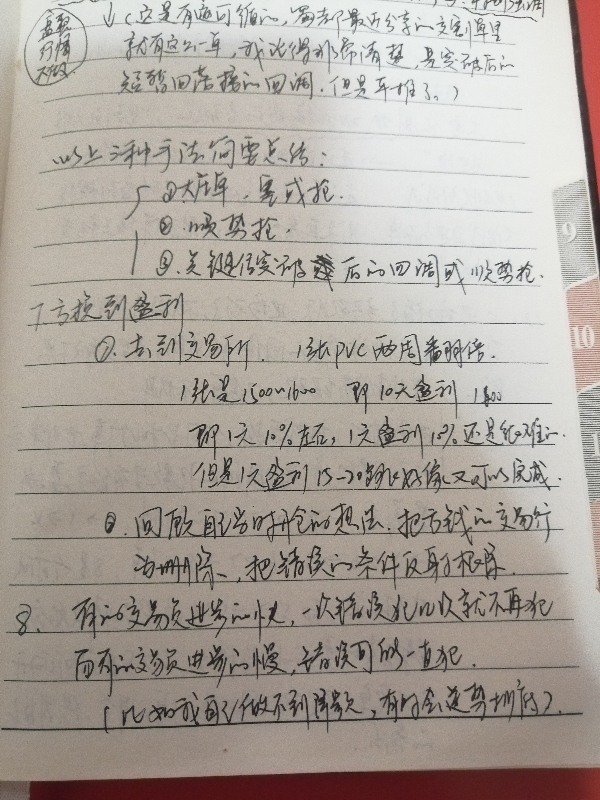 (这是有迹可循的,
最近分享的交割单里
就有这么一单,我记得非常清楚,是突破后的
短暂回落接的回调,但是平推了。)
以上三种手法简要总结:
①大压单,塞或抢.
②顺势抢.
③关键位突破后的回调或顺势抢.
7.亏损到盈利
①.去到交易所. 1张PVC两周翻倍.
1张是1500~1600 即10天盈利1600
即1天10%左右,1天盈利10%还是很难的.
但是1天盈利15-20好像又可以完成.
②.回顾自己当时开仓的想法.把亏钱的交易行
为删除、把错误的条件反射根除.
8.有的交易员进步的快,一次错误犯几次就不再犯
而有的交易员进步的慢,错误可能一直犯.
(比如我自己做不到,有时会逆势抄底).
9
10